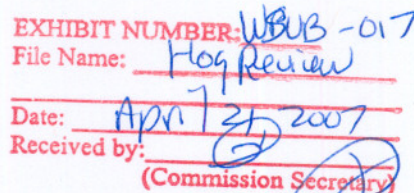 EXHIBIT NUMBER: WBUB-017
File Name: Hog Review
Date: April 21, 2007
Received by:
(Commission Secretary)